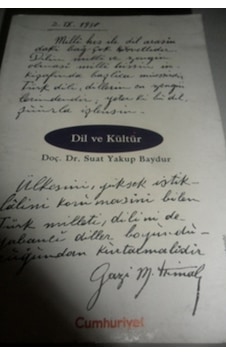 2.IX.1930
Milli his ile dil arasın
daki bağ çok kuvvetlidir.
Dilin milli ve zengin
olması milli hissin in-
kişafında başlıca müessirdir.
Türk dili, dillerin en zengin-
lerindendir, yeter ki bu dil,
şuurla işlensin.
Dil ve Kültür
Doç. Dr. Suat Yakup Baydur
Ülkesini, yüksek istik-
lâlini korumasını bilen
Türk milleti, dilini de
yabancı diller boyundu-
ruğundan kurtarmalıdır
Gazi M. Kemal
Cumhuriyet